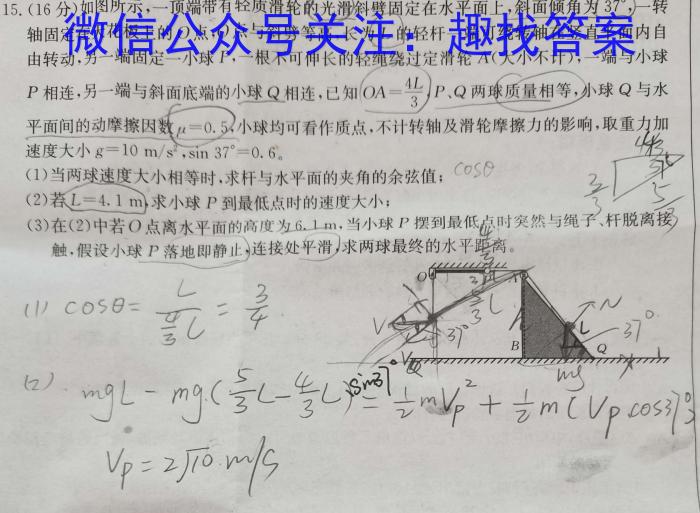 15.(16分)如图所示,一顶端带有轻质滑轮的光滑斜劈固定在水平面上,斜面倾角为37°,一转
微信公众号关注：趣找答案
由转动,另一端固定一小球P,一根不可伸长的轻绳绕过定滑轮A(大小不计),一端与小球
P相连,另一端与斜面底端的小球Q相连,已知OA=4L/3,P、Q两球质量相等,小球Q与水
平面间的动摩擦因数μ=0.5,小球均可看作质点,不计转轴及滑轮摩擦力的影响,取重力加
速度大小g=10 m/s²,sin 37°=0.6。
(1)当两球速度大小相等时,求杆与水平面的夹角的余弦值; cosθ
(2)若L=4.1 m,求小球P到最低点时的速度大小;
(3)在(2)中若O点离水平面的高度为6.1 m,当小球P摆到最低点时突然与绳子、杆脱离接
触,假设小球P落地即静止,连接处平滑,求两球最终的水平距离。
(1) cosθ= L/(4/3 L) = 3/4
O
A
37°
N
L
37°
B
Q
mg
(2). mgL - mg.(5/3 L - 4/3 L)sin37° = 1/2 mVp² + 1/2 m(Vp cos37°)²
Vp=2√10 m/s